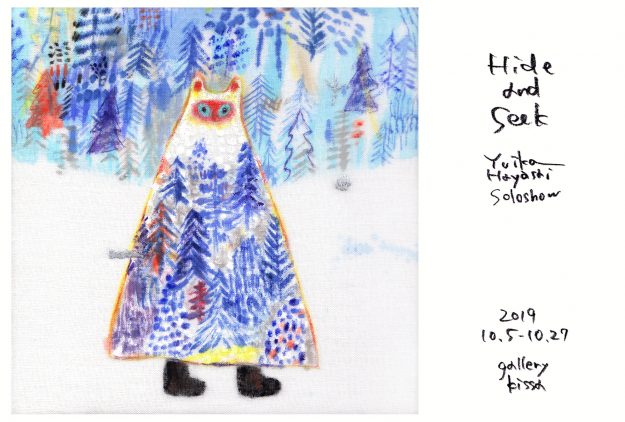 Hide
and
Seek
Yuika
Hayashi
Soloshow
2019
10.5-10.27
gallery
kissa